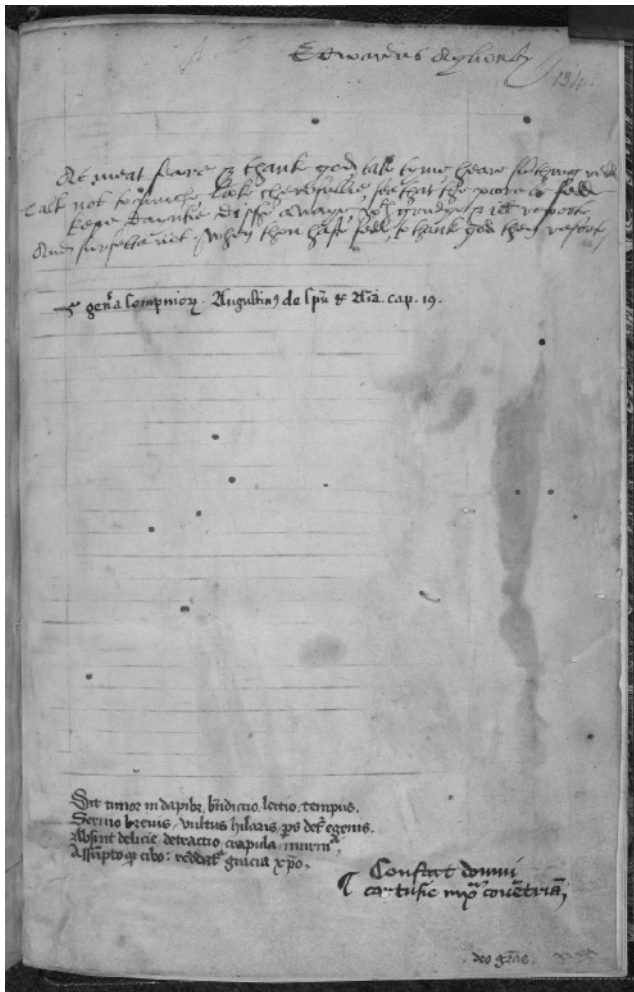 Edwardus Aglionby
134
At meat feare & thank god, talk tyme heare sothing
talk not to muche, look cherefullie, see that the poore be fedd
kepe dayntie disshe awaye, grudge & ill reporte
And surfett not. When thou hast fedd, to thank god then resort
gen̄a sompnioꝝ. Augustinꝰ de spū & aīa. cap. 19.
Sit timor in dapibꝫ, bn̄diccio, lectio, tempus.
Sermo breuis, vultus hilaris, ps det᷑ egenis.
Absint delicie, detractio, crapula, murm᷑,
Assūptoqꝫ cibo: reddat᷑ gracia xp̄o.
¶ Constat domui
cartusie iuxᵃ couētriā,
deo grās.